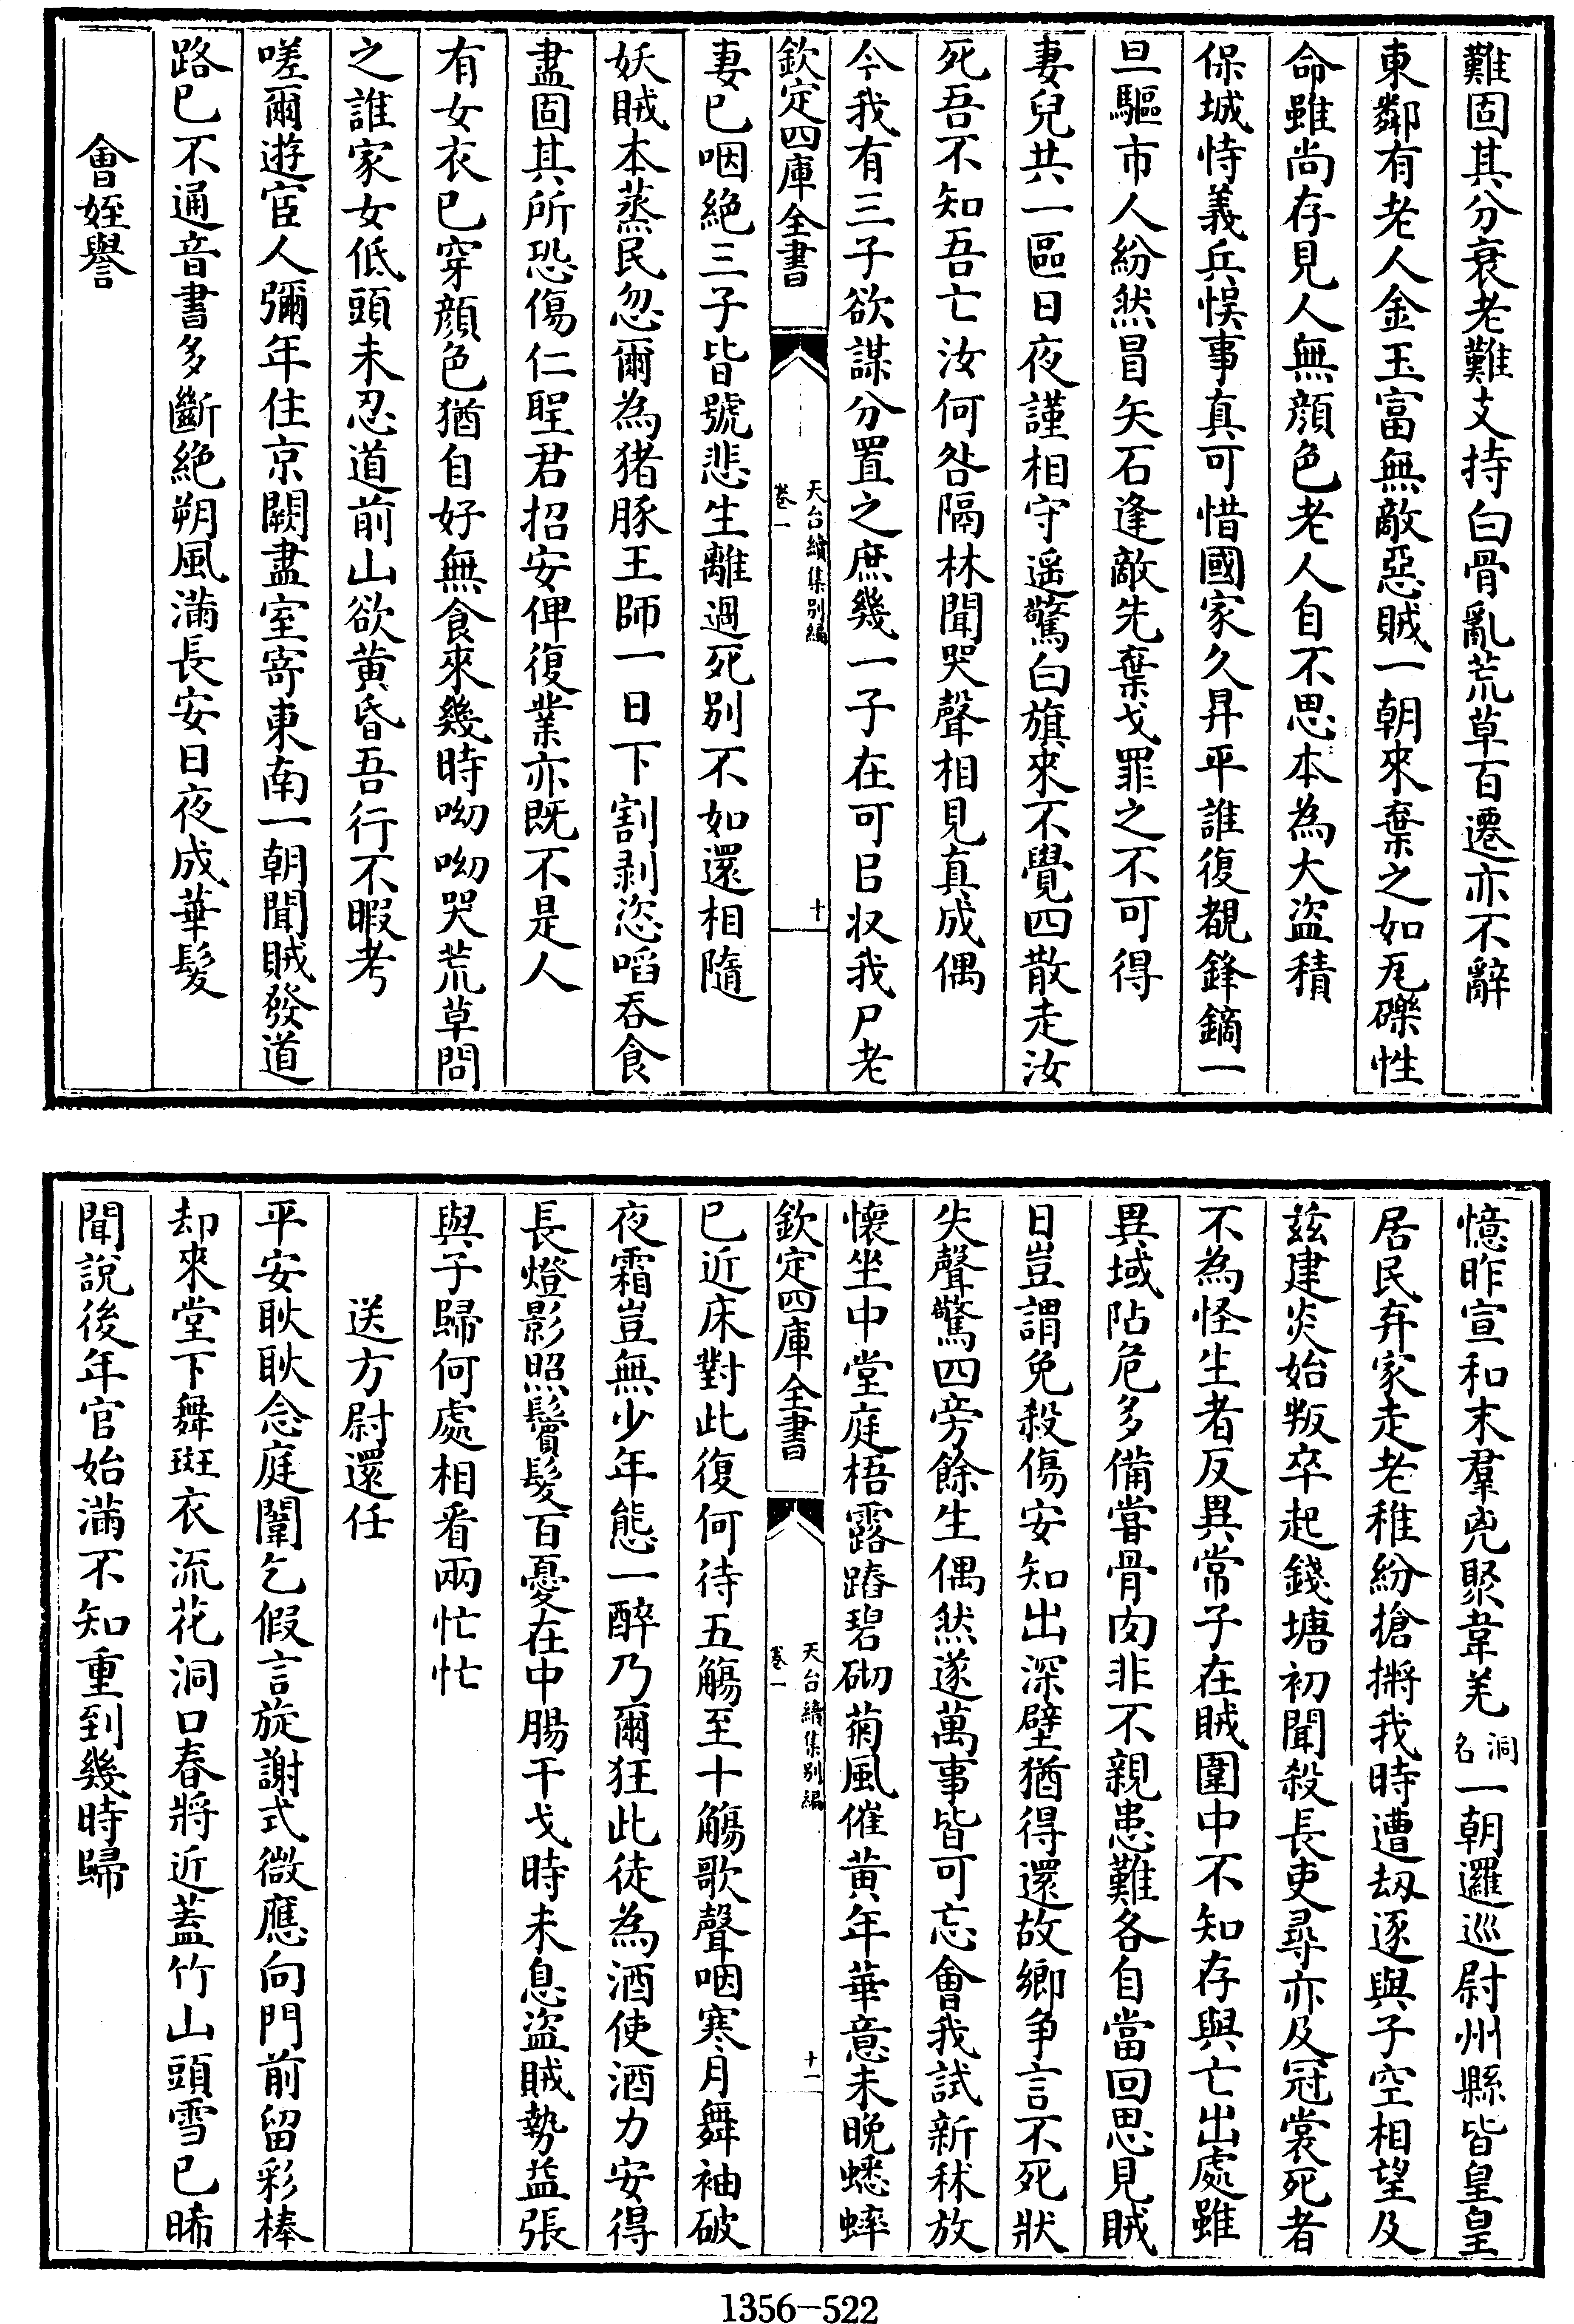 難固其分衰老難支持白骨亂荒草百遷亦不辭
東鄰有老人金玉富無敵惡賊一朝來棄之如瓦礫性
命雖尚存見人無顔色老人自不思本為大盗積
保城恃義兵悮事真可惜國家久昇平誰復覩鋒鏑一
旦驅市人紛然冒矢石逢敵先棄戈罪之不可得
妻兒共一區日夜謹相守遥驚白旗來不覺四散走汝
死吾不知吾亡汝何咎隔林聞哭聲相見真成偶
今我有三子欲謀分置之庶幾一子在可㠯収我尸老
欽定四庫全書
天台續集别編
卷一
十
妻已咽絶三子皆號悲生離過死别不如還相隨
妖賊本蒸民忽爾為猪豚王師一日下割剥恣㗖吞食
盡固其所恐傷仁聖君招安俾復業亦既不是人
有女衣已穿顔色猶自好無食來幾時呦呦哭荒草問
之誰家女低頭未忍道前山欲黄昏吾行不暇考
嗟爾遊宦人彌年住京闕盡室寄東南一朝聞賊發道
路已不通音書多斷絶朔風滿長安日夜成華髮
會姪譽
憶昨宣和末羣兇聚韋羌洞名一朝邏巡尉州縣皆皇皇
居民弃家走老稚紛搶攘我時遭刼逐與子空相望及
兹建炎始叛卒起錢塘初聞殺長吏尋亦及冠裳死者
不為怪生者反異常子在賊圍中不知存與亡出處雖
異域阽危多備嘗骨肉非不親患難各自當回思見賊
日豈謂免殺傷安知出深壁猶得還故鄉争言不死狀
失聲驚四旁餘生偶然遂萬事皆可忘會我試新秫放
懷坐中堂庭梧露踏碧砌菊風催黄年華意未晚蟋蟀
欽定四庫全書
天台續集别編
卷一
十一
已近床對此復何待五觴至十觴歌聲咽寒月舞袖破
夜霜豈無少年態一醉乃爾狂此徒為酒使酒力安得
長燈影照鬢髮百憂在中腸干戈時未息盗賊勢益張
與子歸何處相看兩忙忙
送方尉還任
平安耿耿念庭闈乞假言旋謝式微應向門前留彩棒
却來堂下舞斑衣流花洞口春將近蓋竹山頭雪已晞
聞說後年官始滿不知重到幾時歸
1356-522